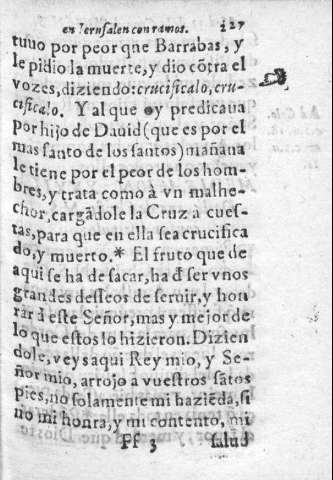 en Ierusalen con ramos. 227
tuuo por peor que Barrabas, y
le pidio la muerte, y dio cõtra el
vozes, diziendo: crucificalo, cru-
cificalo. Y al que oy predicaua
por hijo de Dauid (que es por el
mas santo de los santos) mañana
le tiene por el peor de los hom-
bres, y trata como à vn malhe-
chor, cargãdole la Cruz a cues-
tas, para que en ella sea crucifica
do, y muerto.* El fruto que de
aqui se ha de sacar, ha đ ser vnos
grandes desseos de seruir, y hon
rar à este Señor, mas y mejor de
lo que estos lo hizieron. Dizien
dole, veys aqui Rey mio, y Se-
ñor mio, arrojo a vuestros sãtos
pies, no solamente mi haziẽda, si
no mi honra, y mi contento, mi
Ff 3 salud